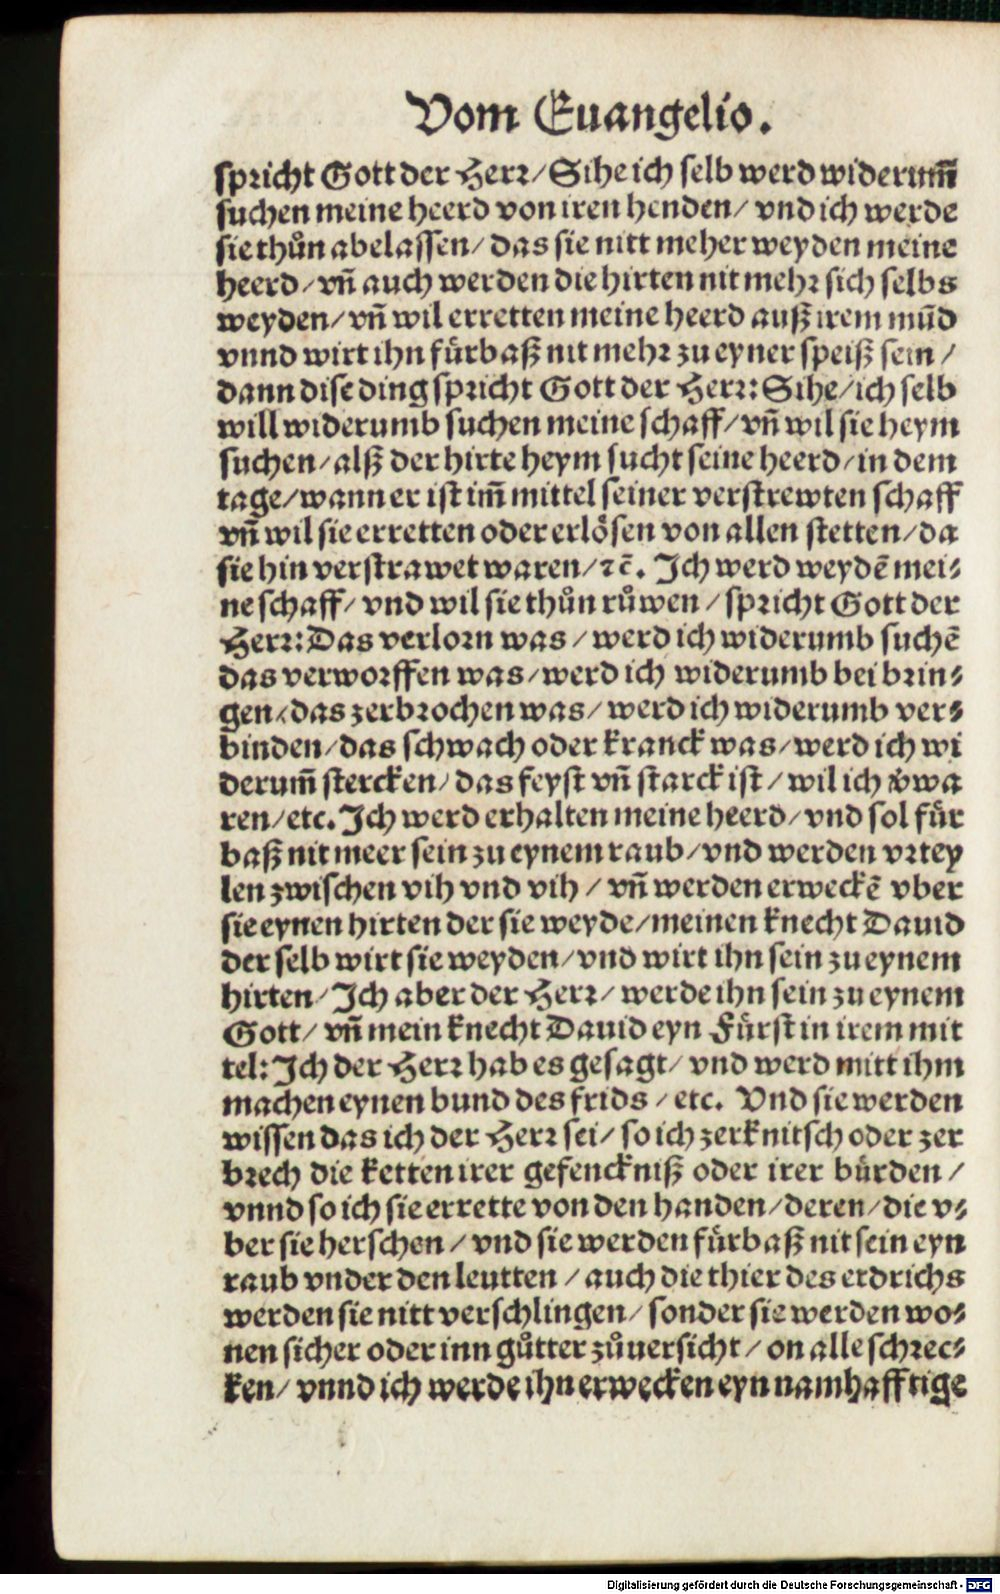 Vom Euangelio.
spricht Gott der Herr/ Sihe ich selb werd widerum̃
suchen meine heerd von iren henden/ vnd ich werde
sie thůn abelassen/ das sie nitt meher weyden meine
heerd/ vñ auch werden die hirten nit mehr sich selbs
weyden/ vñ wil erretten meine heerd auß irem mũd
vnnd wirt ihn fürbaß nit mehr zu eyner speiß sein/
dann dise ding spricht Gott der Herr: Sihe/ ich selb
will widerumb suchen meine schaff/ vñ wil sie heym
suchen/ alß der hirte heym sucht seine heerd/ in dem
tage/ wann er ist im̃ mittel seiner verstrewten schaff
vñ wil sie erretten oder erlösen von allen stetten/ da
sie hin verstrawet waren/ ꝛc̃. Ich werd weydẽ mei⸗
ne schaff/ vnd wil sie thůn růwen/ spricht Gott der
Herr: Das verlorn was/ werd ich widerumb suchẽ
das verworffen was/ werd ich widerumb bei brin⸗
gen/ das zerbrochen was/ werd ich widerumb ver⸗
binden/ das schwach oder kranck was/ werd ich wi
derum̃ stercken/ das feyst vñ starck ist/ wil ich v̓wa
ren/ etc. Ich werd erhalten meine heerd/ vnd sol für
baß nit meer sein zu eynem raub/ vnd werden vrtey
len zwischen vih vnd vih/ vñ werden erweckẽ vber
sie eynen hirten der sie weyde/ meinen knecht Dauid
der selb wirt sie weyden/ vnd wirt ihn sein zu eynem
hirten/ Ich aber der Herr/ werde ihn sein zu eynem
Gott/ vñ mein knecht Dauid eyn Fürst in irem mit
tel: Ich der Herr hab es gesagt/ vnd werd mitt ihm
machen eynen bund des frids/ etc. Vnd sie werden
wissen das ich der Herr sei/ so ich zerknitsch oder zer
brech die ketten irer gefenckniß oder irer bürden/
vnnd so ich sie errette von den handen/ deren/ die v⸗
ber sie herschen/ vnd sie werden fürbaß nit sein eyn
raub vnder den leutten/ auch die thier des erdrichs
werden sie nitt verschlingen/ sonder sie werden wo⸗
nen sicher oder inn gůtter zůuersicht/ on alle schrec⸗
ken/ vnnd ich werde ihn erwecken eyn namhafftige
Digitalisierung gefördert durch die Deutsche Forschungsgemeinschaft - DFG